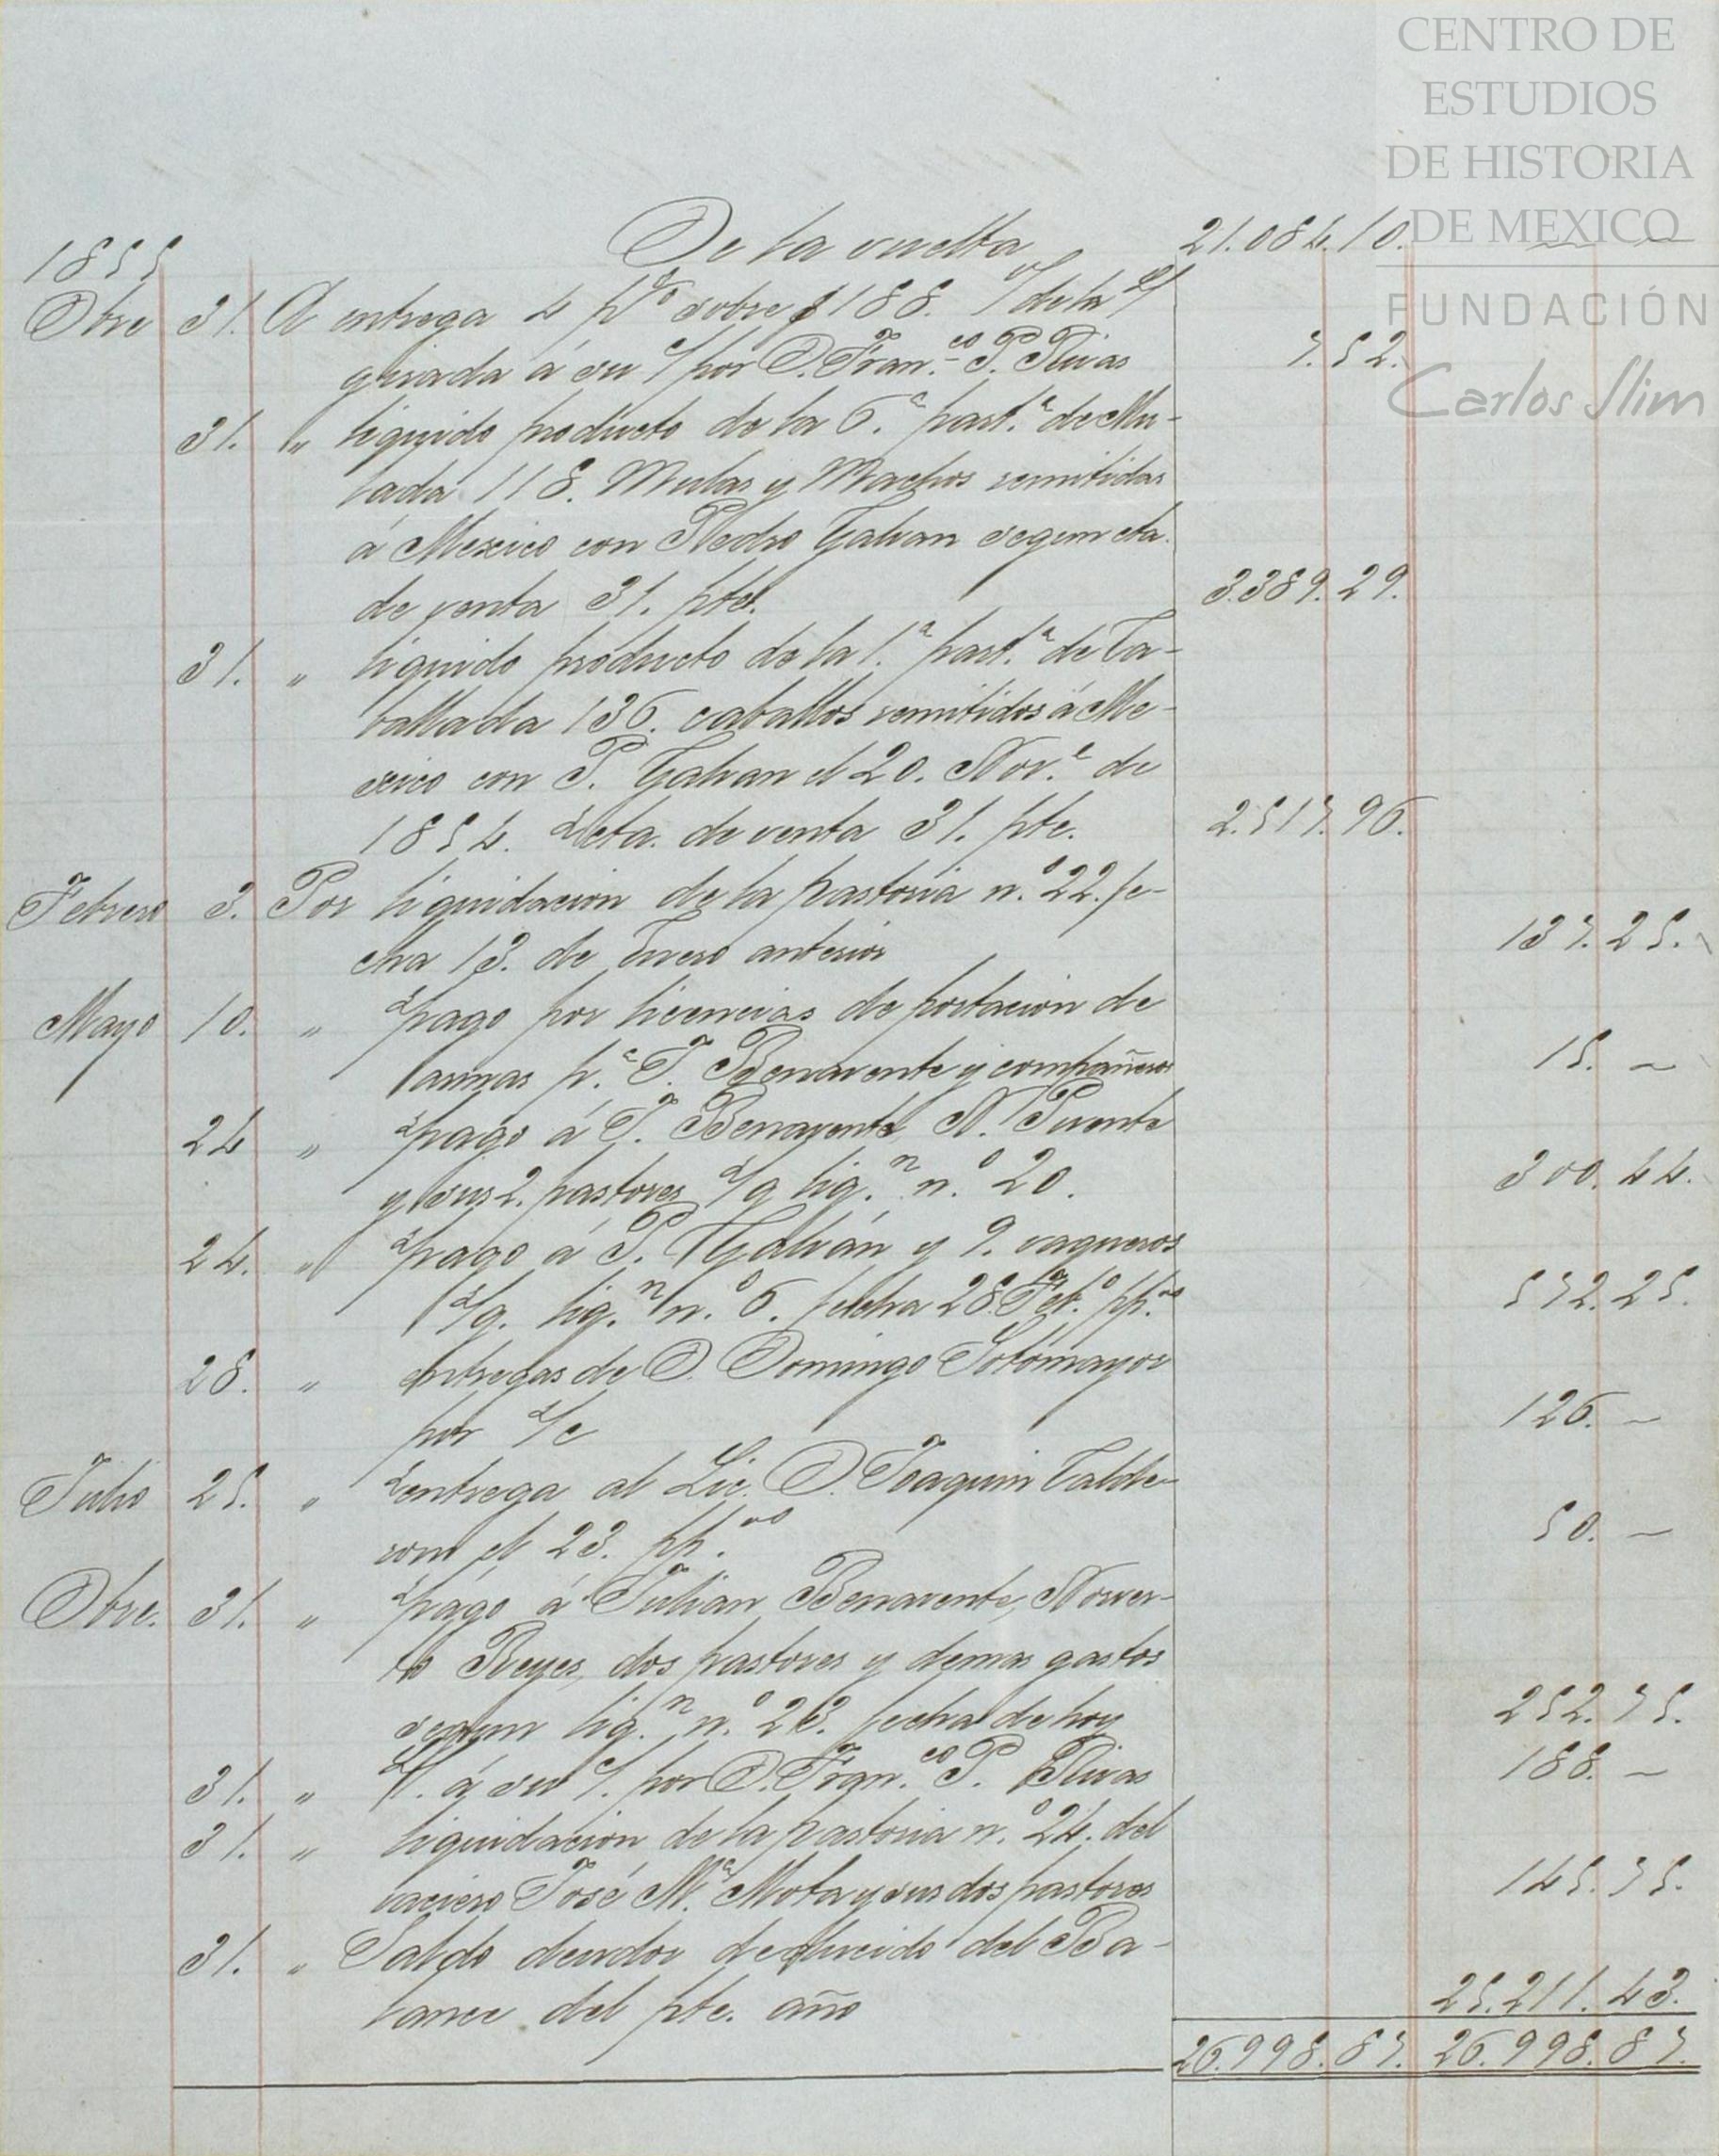 CENTRO DE
ESTUDIOS
DE HISTORIA
DE MEXICO
FUNDACIÓN
Carlos Slim
1855 De la vuelta 21.084.10.
Dbre 31. A entrega 4 p% sobre $188. de la
girada á su por D. Fran.co P. Rivas 7.52.
31. " liquido producto de la 6.a part.a de Mu-
lada 118. Mulas y Machos remitidas
á Mexico con Pedro Galvan segun cta.
de venta 31. pte. 3.389.29.
31. " liquido producto de la 1.a part.a de Ca-
ballada 136. caballos remitidos á Me-
xico con P. Galvan el 20. Nov.e de
1854. cta. de venta 31. pte. 2.517.96.
Febrero 3. Por liquidacion de la pastoria n.o 22. fe-
cha 13. de Enero anterior 137.25.
Mayo 10. " pago por licencias de portacion de
armas p.a J. Benavente y compañeros 15. –
24 " pago á J. Benavente N. Puente
y sus 2. pastores liq.n n.o 20. 300.44.
24. " pago á P. Galván y 9. vaqueros
liq.n n.o 6. fecha 28. Feb.o pp.do 572.25.
28. " entregas de D. Domingo Sotomayor
por /c 126. –
Julio 25. " entrega al Lic. D. Joaquin Calde-
ron el 23. pp.do 50. –
Dbre. 31. " pago á Julian Benavente, Norver-
to Reyes, dos pastores y demas gastos
segun liq.n n.o 23. fecha de hoy 252.75.
31. " á su por D. Fran.co P. Rivas 188. –
31. " liquidacion de la pastoria n.o 24. del
vaciero José M.a Mota y sus dos pastores 145.75.
31. " Saldo deudor deducido del Ba-
lance del pte. año 25.211.43.
26.998.87. 26.998.87.